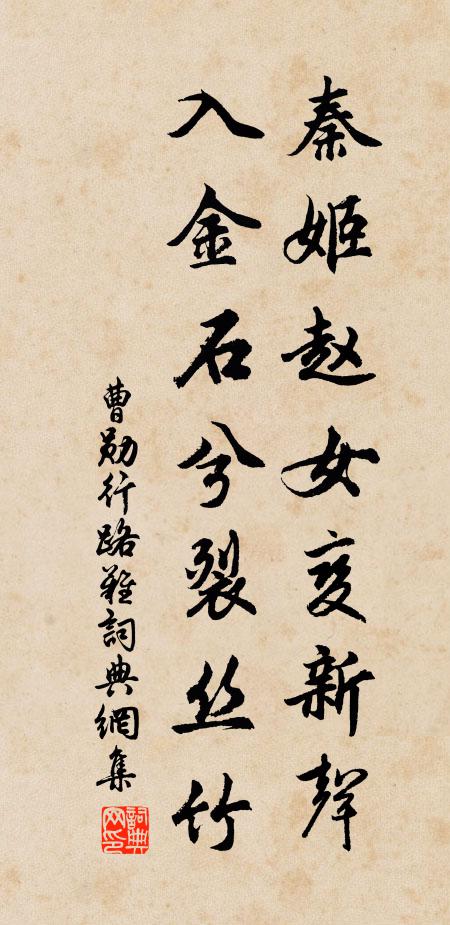 秦姬赵女变新声
入金石兮裂丝竹
曹勋行路难词典網集
詞典網印